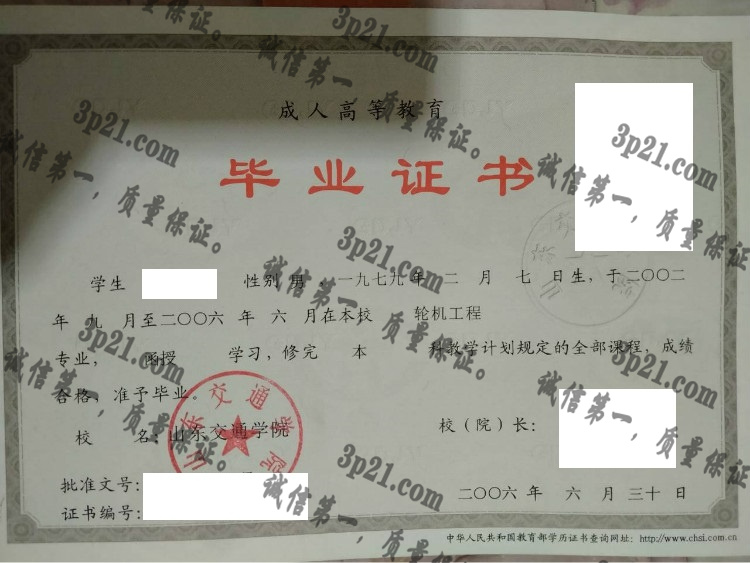 成人高等教育
毕业证书
学生 性别 男，一九七九年 二 月 七 日生，于二〇〇二
年 九 月至二〇〇六 年 六 月在本校 轮机工程
专业， 函授 学习，修完 本 科教学计划规定的全部课程，成绩
合格，准予毕业。
校 名：山东交通学院
校（院）长：
批准文号：
证书编号：
二〇〇六 年 六 月 三十 日
中华人民共和国教育部学历证书查询网址：http://www.chsi.com.cn
山东交通学院
3p21.com
诚信第一，质量保证。
3p21.com
诚信第一，质量保证。
3p21.com
诚信第一，质量保证。
3p21.com
诚信第一，质量保证。
3p21.com
诚信第一，质量保证。
3p21.com
诚信第一，质量保证。
3p21.com
诚信第一，质量保证。
3p21.com
诚信第一，质量保证。